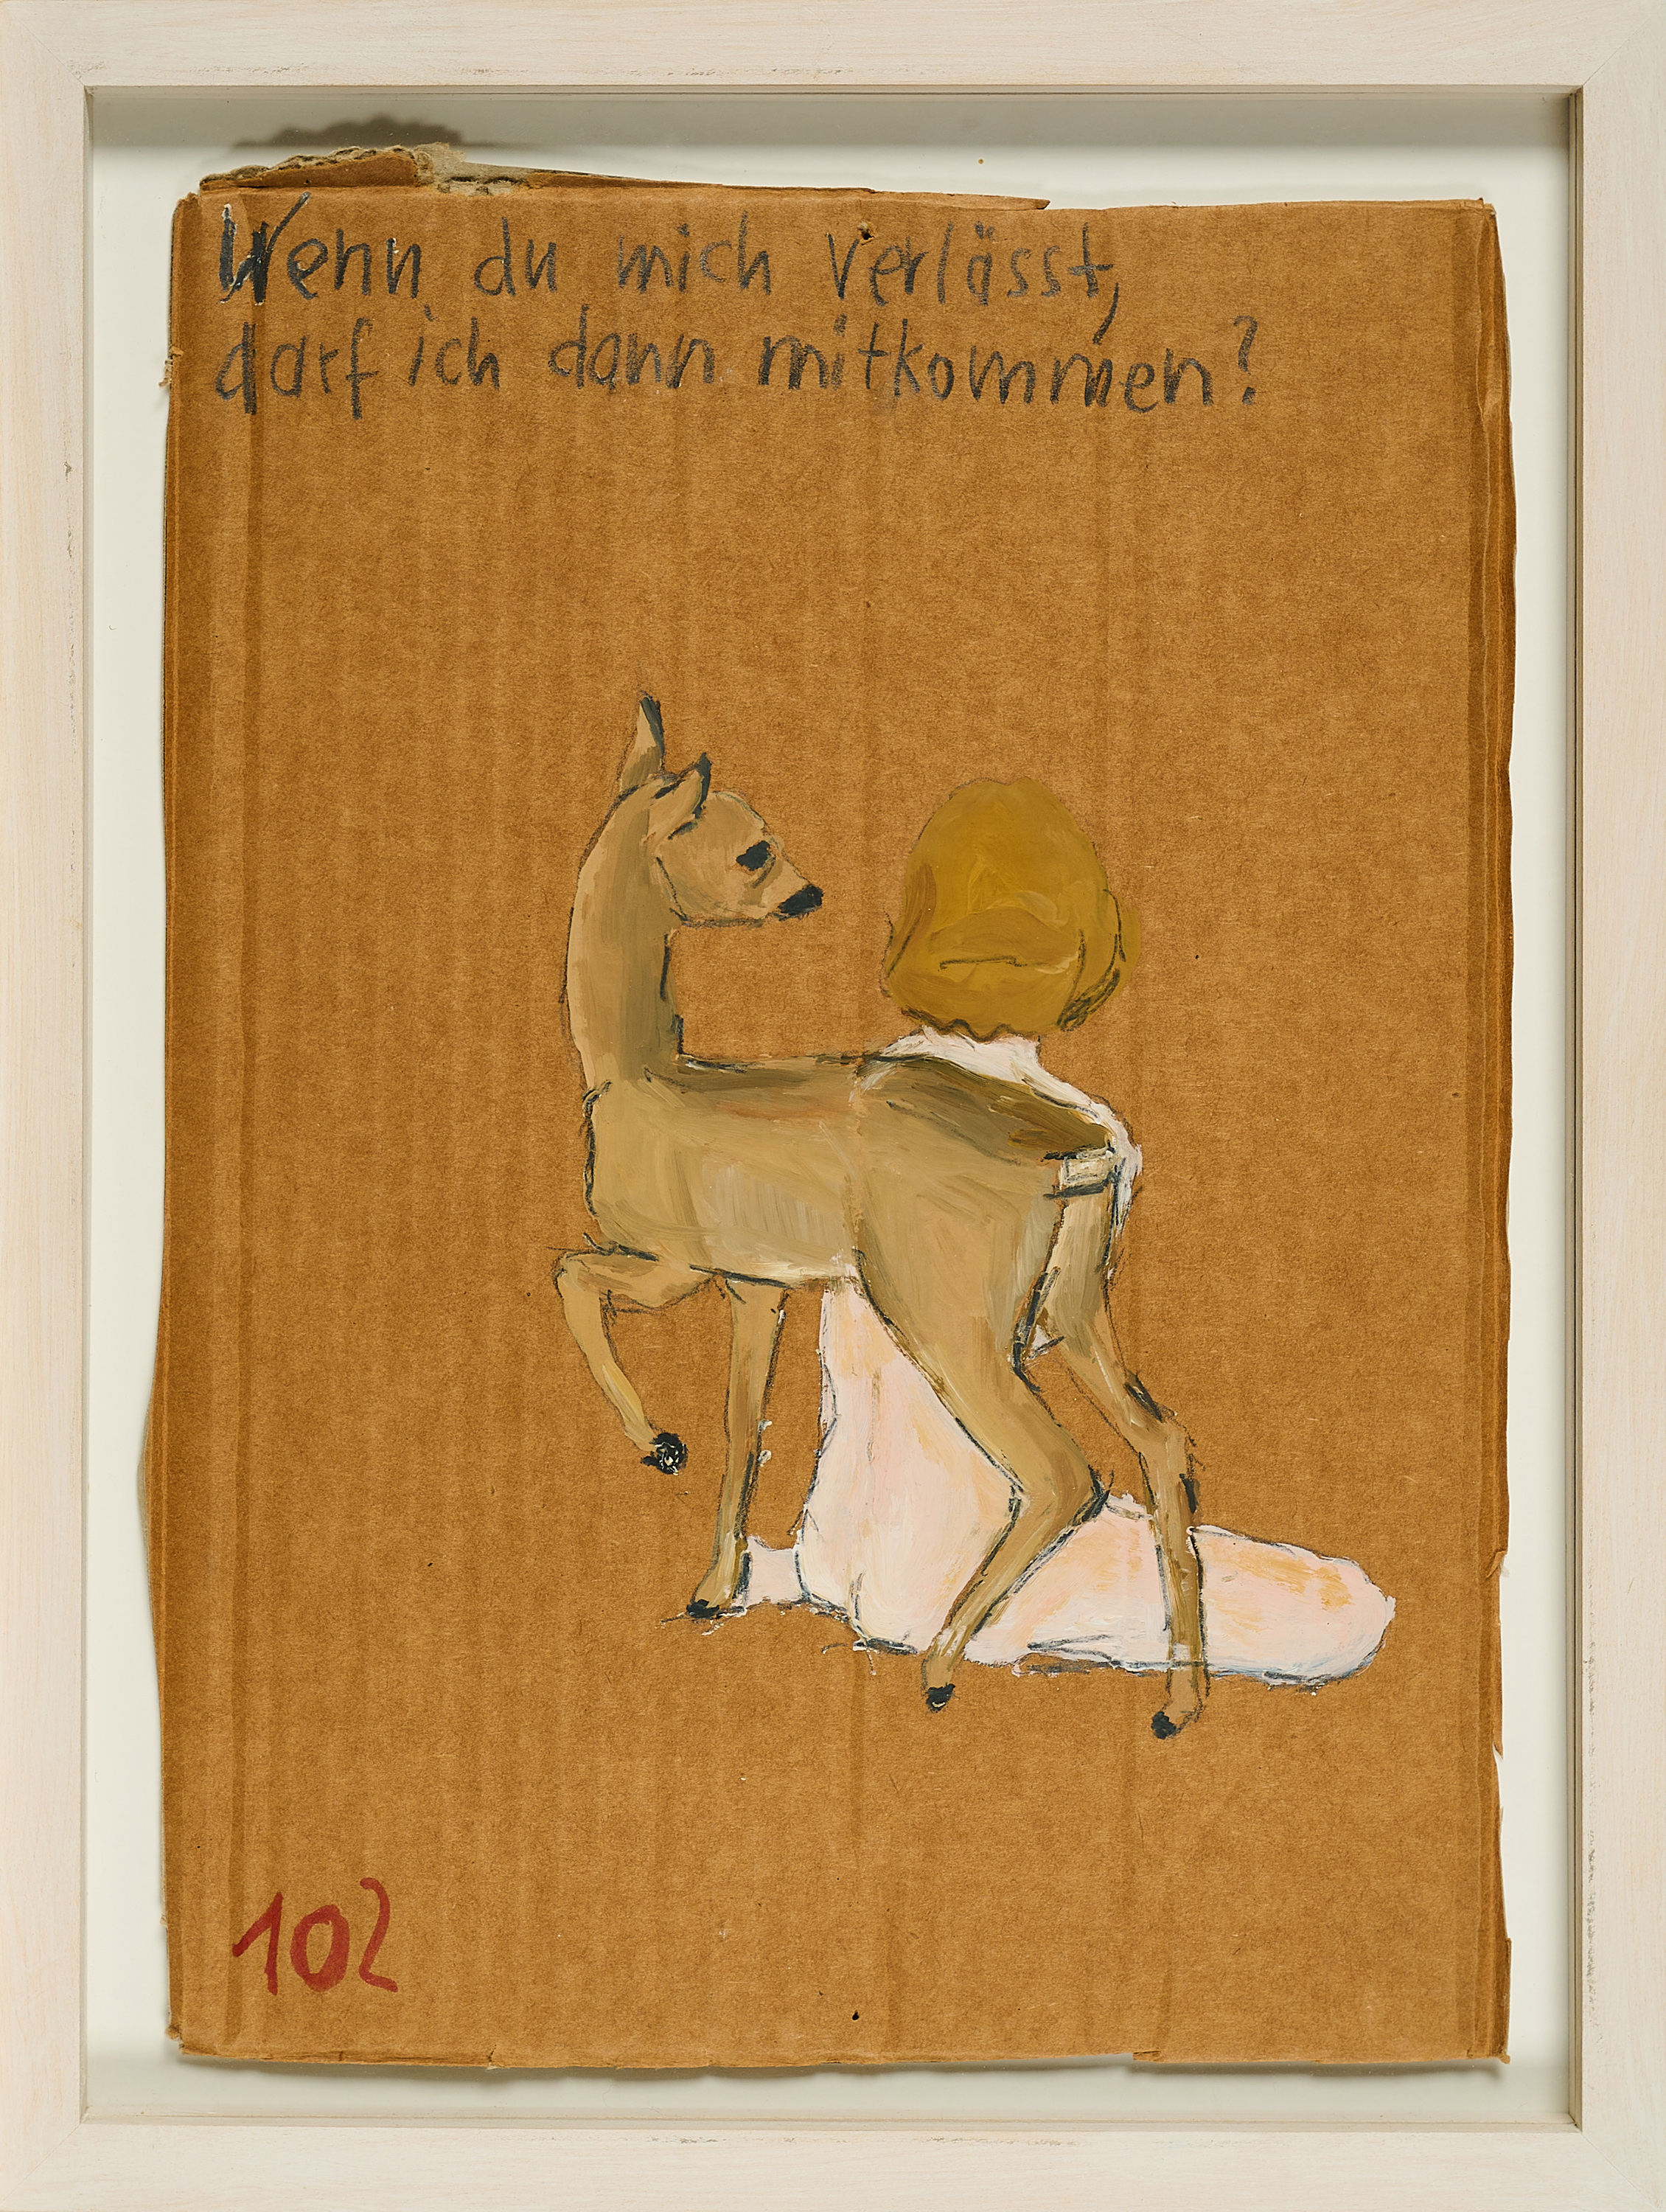 Wenn du mich verlässt,
darf ich dann mitkommen?
102